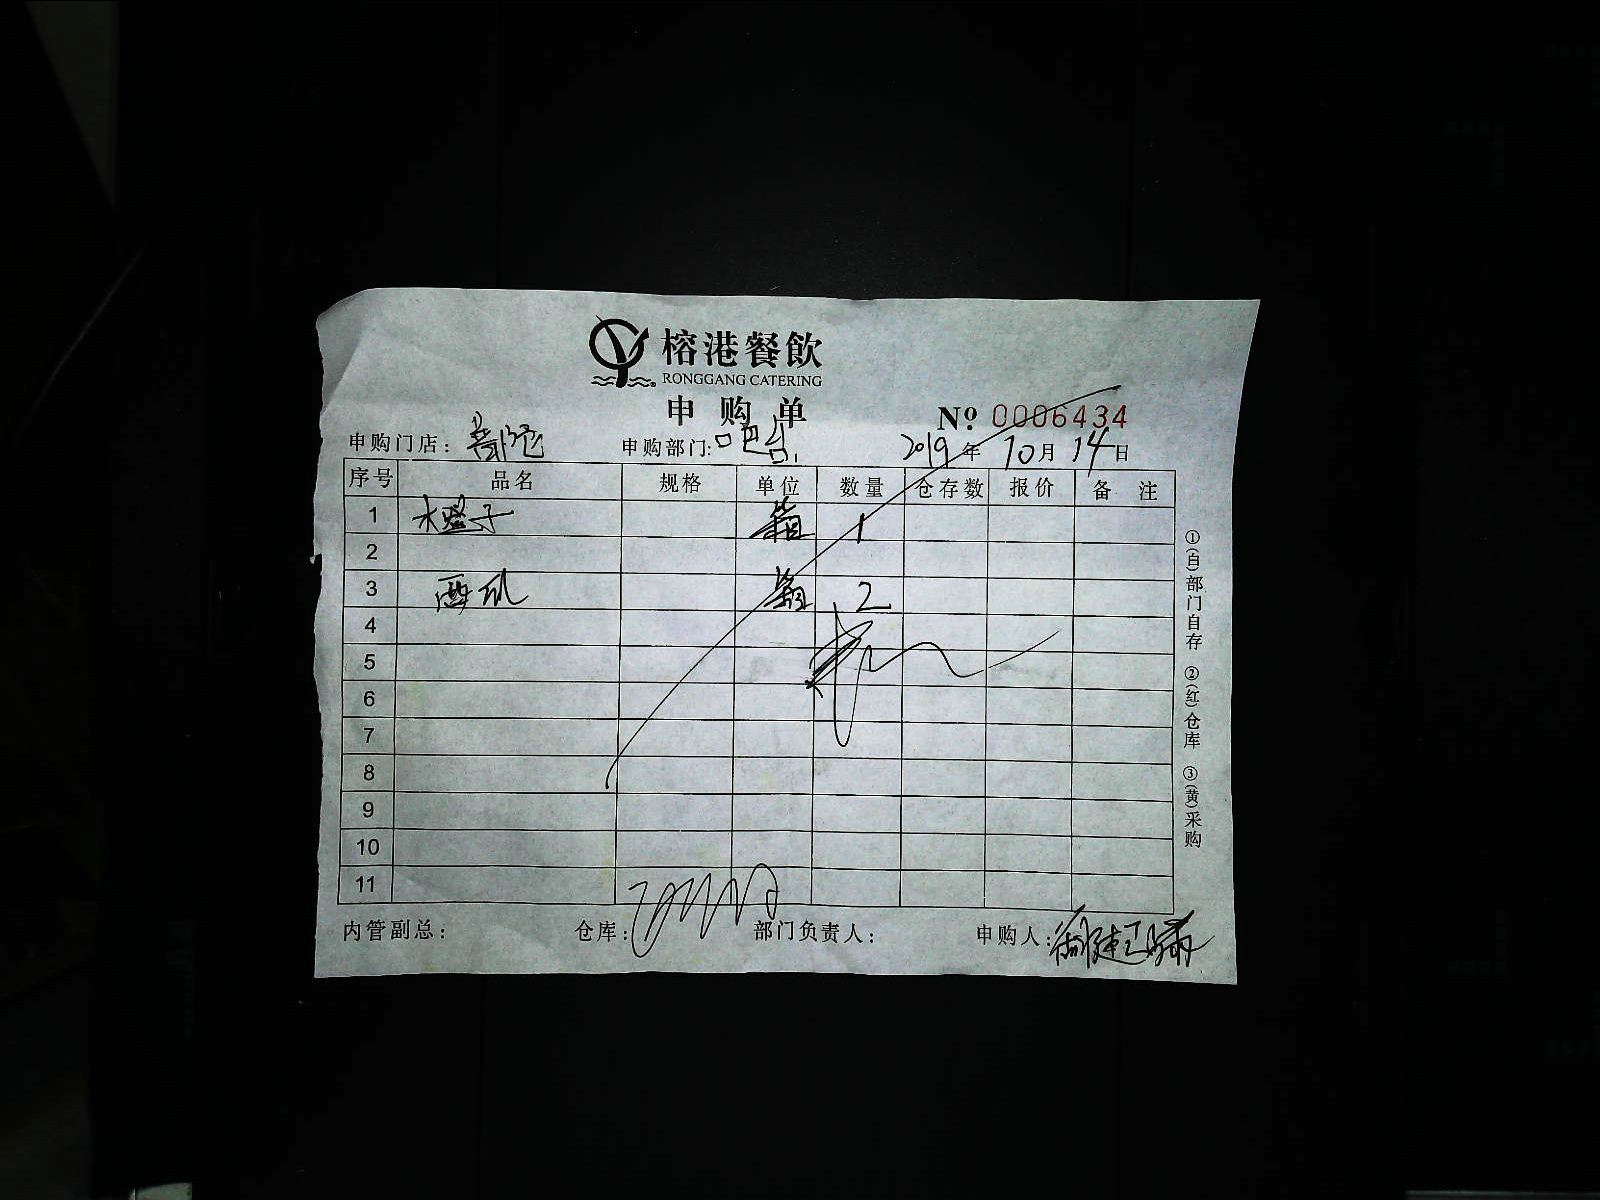 榕港餐飲
RONGGANG CATERING
申购单
№ 0006434
申购门店: 申购部门: 吧台 2019年10月14日
序号 品名 规格 单位 数量 仓存数 报价 备注
1 水 子 箱 1
2
3 西瓜 箱 2
4
5
6
7
8
9
10
11
内管副总: 仓库: 部门负责人: 申购人:
①(白)部门自存 ②(红)仓库 ③(黄)采购